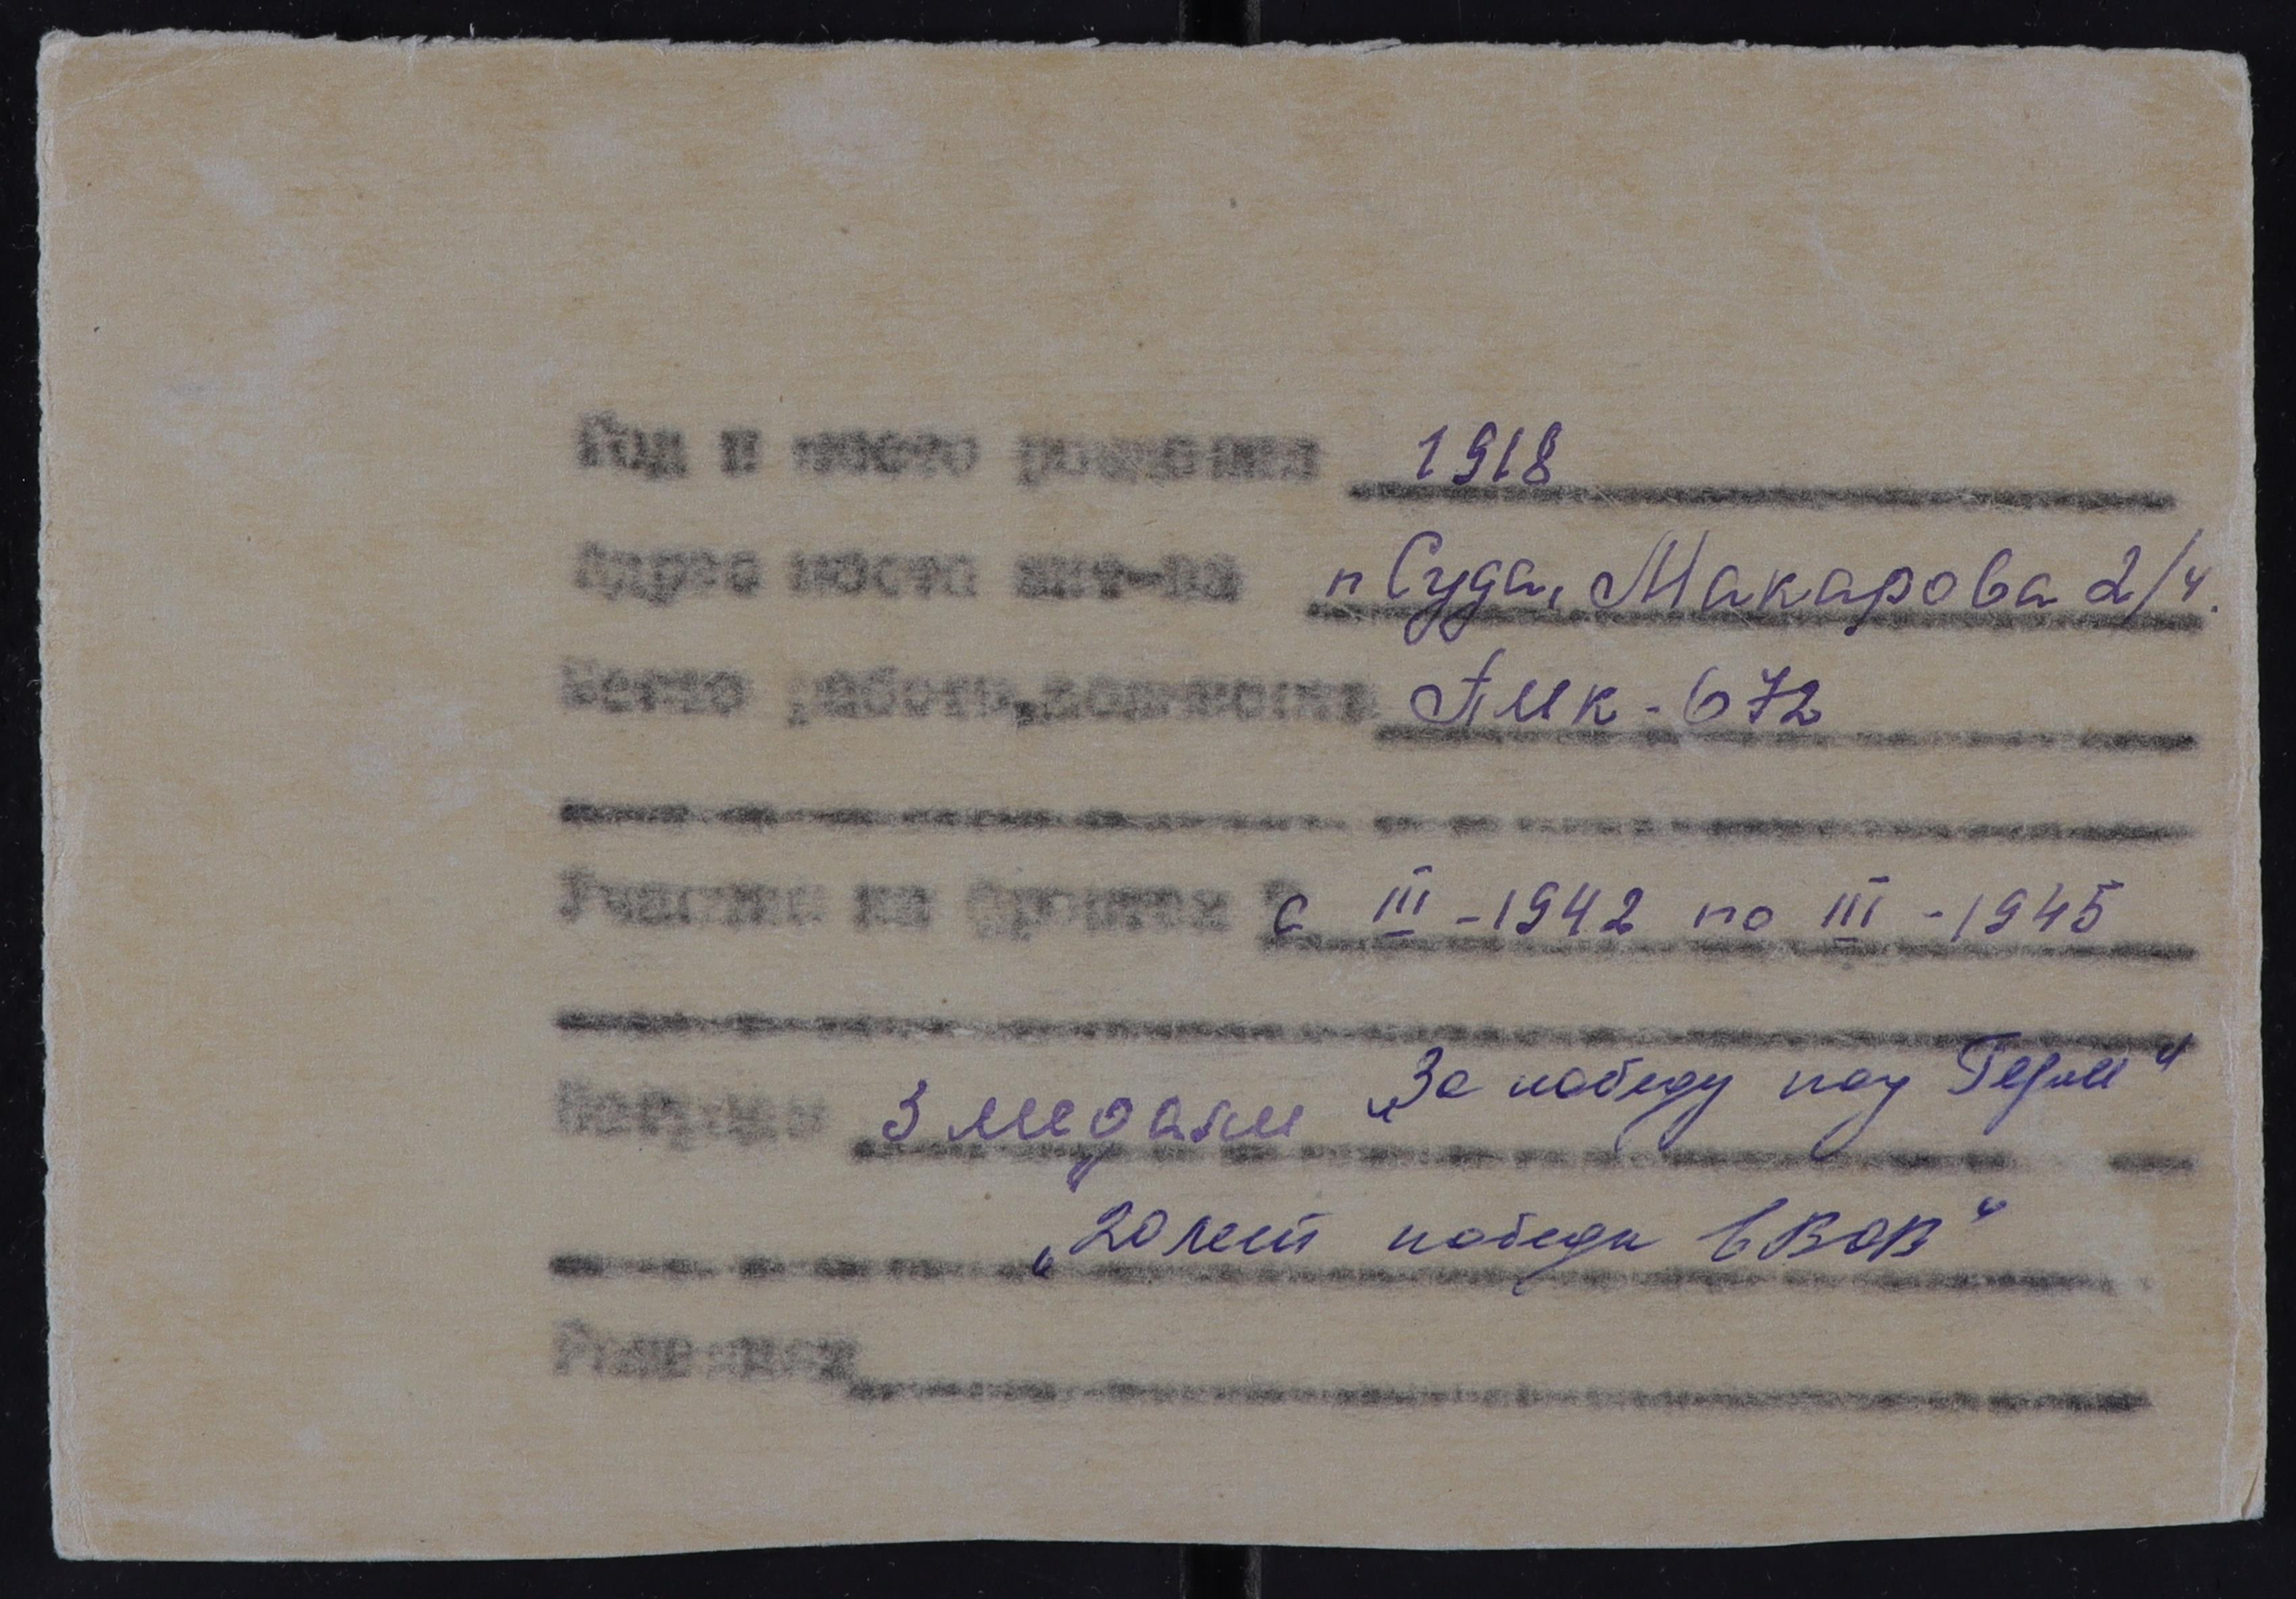 Год и место рождения 1918
Адрес места жит-ва п Суда, Макарова 2/4.
Место работы, должность ПМК-672
Участие на фронтах с III-1942 по III-1945
Награды 3 медали „За победу над Герм“
„20 лет победы в ВОВ“